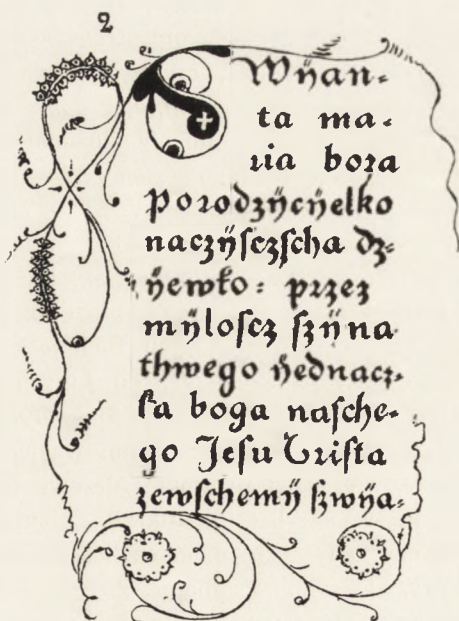 2
SWÿan⸗
ta ma⸗
ria boza
porodzÿcÿelko
naczÿſczſcha dz⸗
ÿewko: przez
mÿloſcz ſzÿna
thwego ÿednacz⸗
ka boga naſche⸗
go Jeſu Criſta
zewſchemÿ ſzwÿa⸗